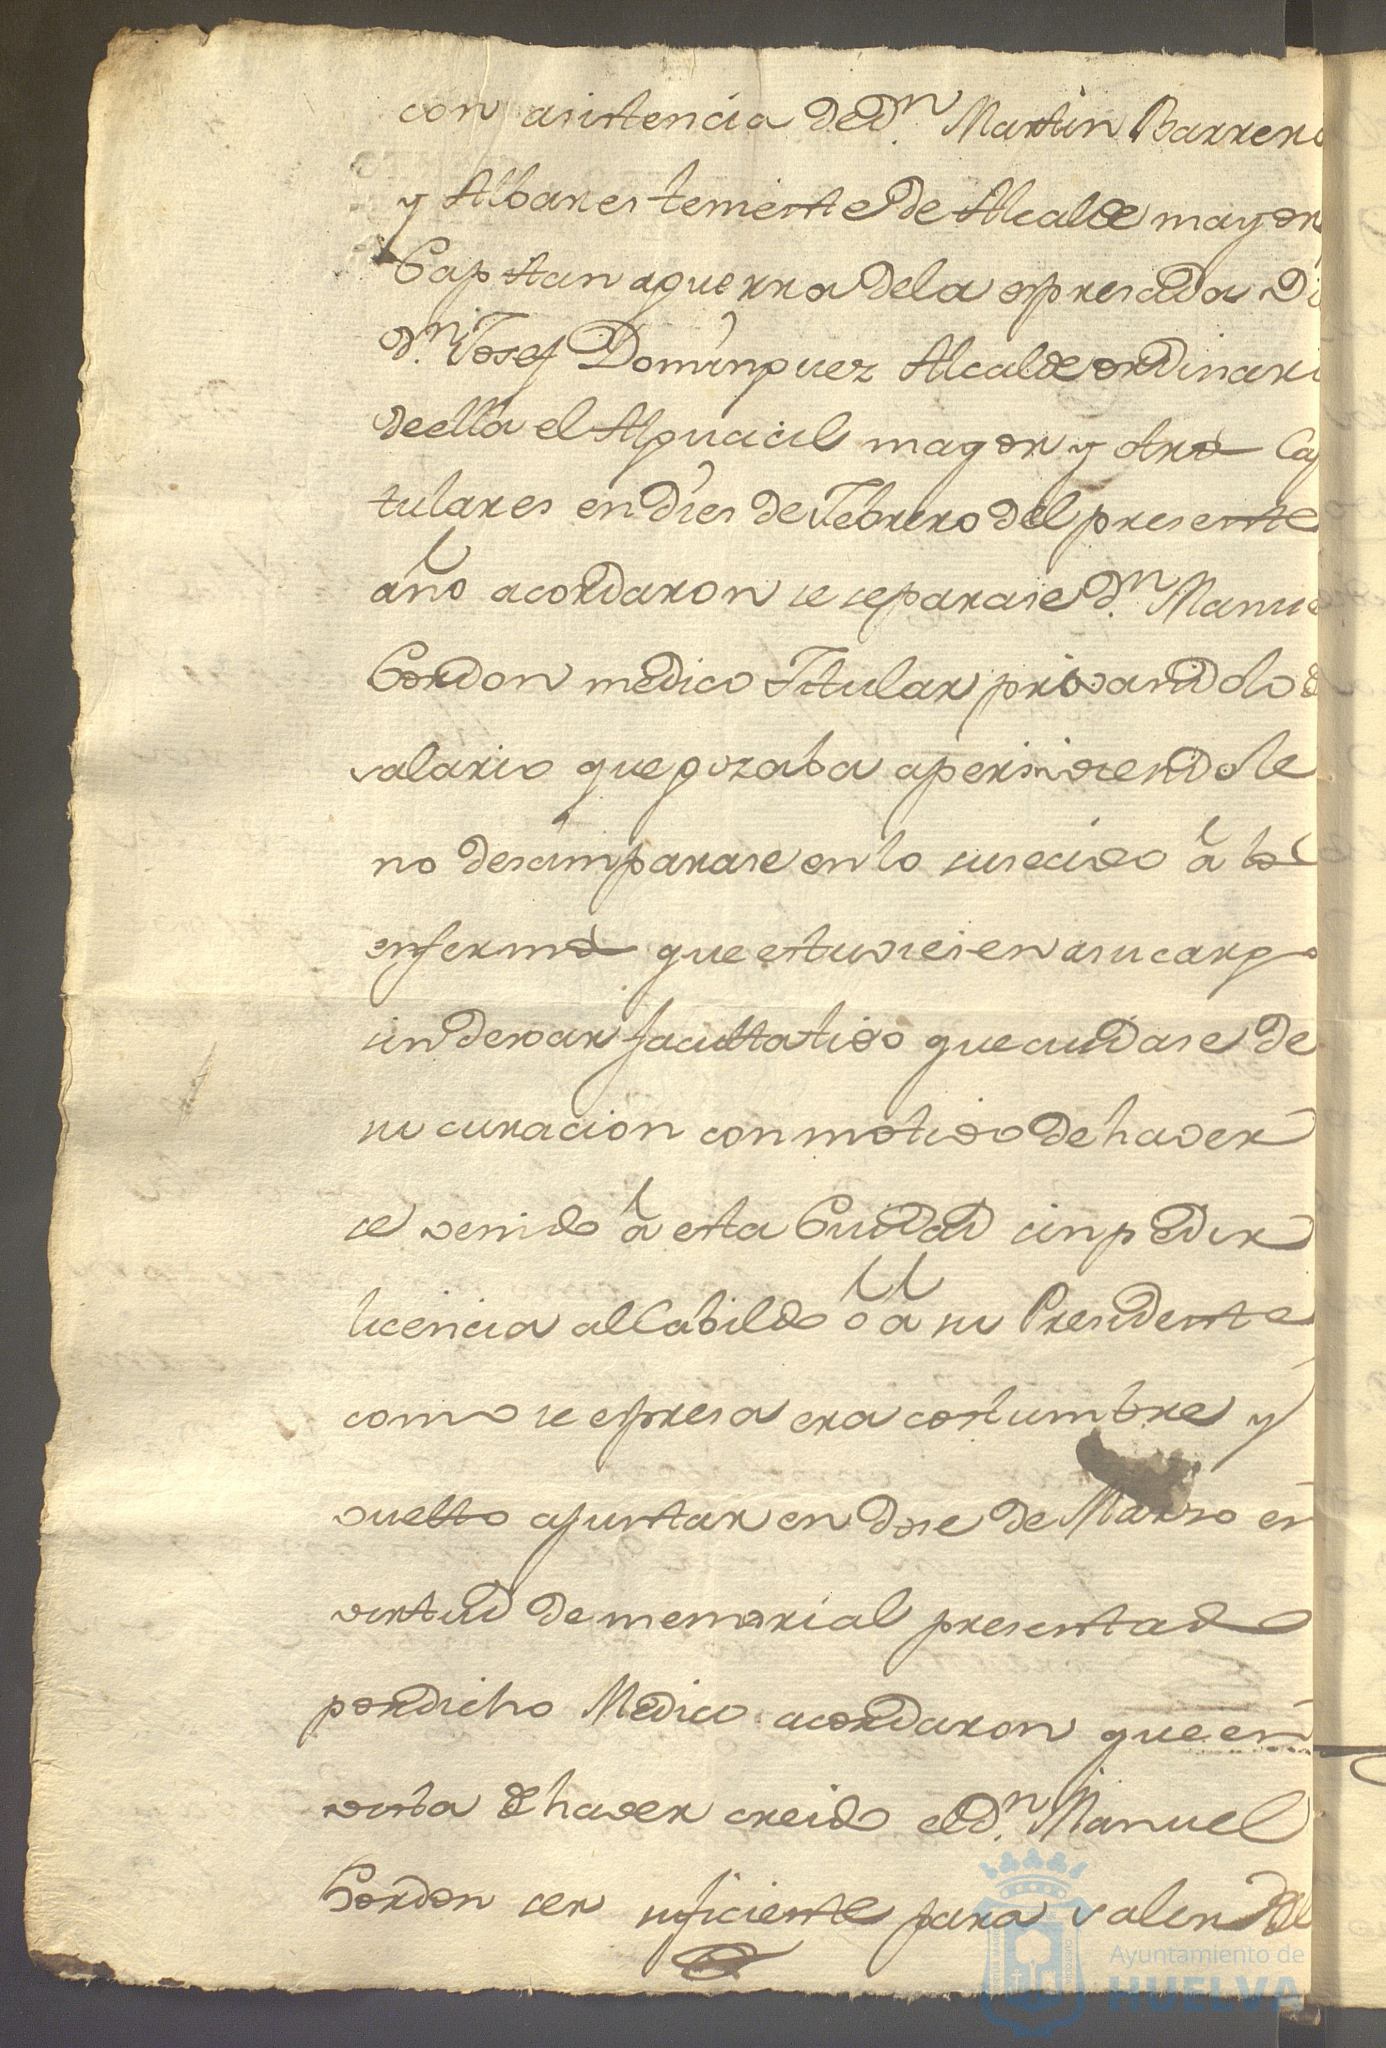 con asistencia de d.n Martin Barrero
y Albares teniente de Alcalde mayor
Capitan aguerra dela espresada
d.n Josef Dominguez Alcalde ordinari
deella el Alguacil mayor y otros Cap
tulares en dies de Febrero del presente
año acordaron se separase d.n Manue
Gordon medico Titular privandolo d
salario que gozaba apersiviendole
no desamparase en lo susecivo â los
enfermos que estuviesen asu cargo
sin dexar facultativo que cuidase de
su curacion con motivo de haver
se venido â esta Ciudad sin pedir
licencia al Cabildo ô â su Presidente
como se espresa era costumbre y
vuelto ajuntar en dose de Marzo en
virtud de memorial presentado
por dicho Medico acordaron que en
vista de haver creido el d.n Manuel
Gordon ser suficiente para salir del
Ayuntamiento de
HUELVA